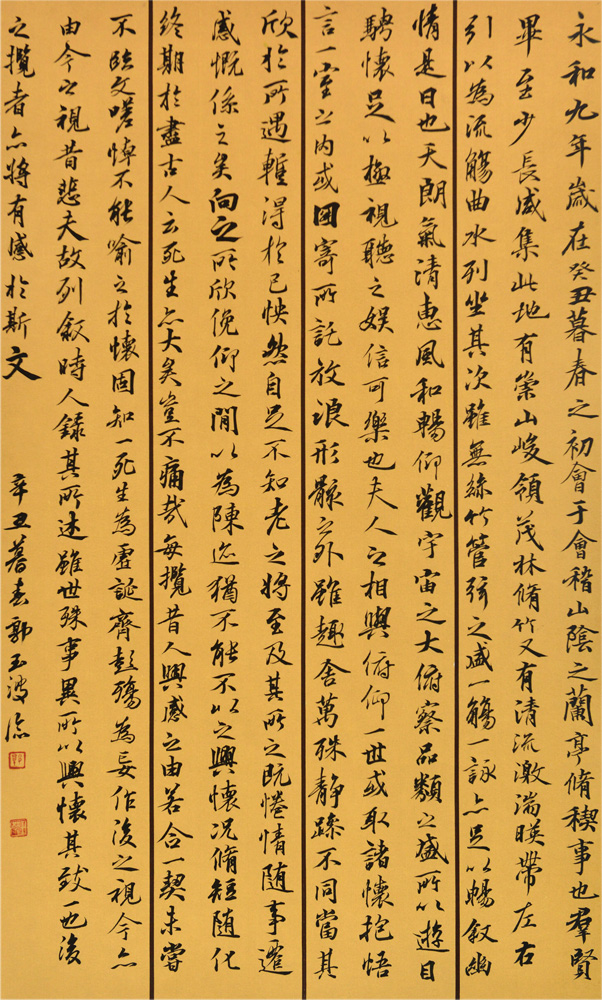 永和九年歲在癸丑暮春之初會于會稽山陰之蘭亭脩稧事也羣賢
畢至少長咸集此地有崇山峻領茂林脩竹又有清流激湍暎帶左右
引以為流觴曲水列坐其次雖無絲竹管弦之盛一觴一詠亦足以暢叙幽
情是日也天朗氣清惠風和暢仰觀宇宙之大俯察品類之盛所以遊目
騁懷足以極視聽之娛信可樂也夫人之相與俯仰一世或取諸懷抱悟
言一室之內或因寄所託放浪形骸之外雖趣舍萬殊静躁不同當其
欣於所遇暫得於己怏然自足不知老之將至及其所之既惓情随事遷
感慨係之矣向之所欣俛仰之間以為陳迹猶不能不以之興懷況脩短随化
終期於盡古人云死生亦大矣豈不痛哉每攬昔人興感之由若合一契未嘗
不臨文嗟悼不能喻之於懷固知一死生為虛誕齊彭殤為妄作後之視今亦
由今之視昔悲夫故列叙時人錄其所述雖世殊事異所以興懷其致一也後
之攬者亦將有感於斯文
辛丑暮春郭玉波臨